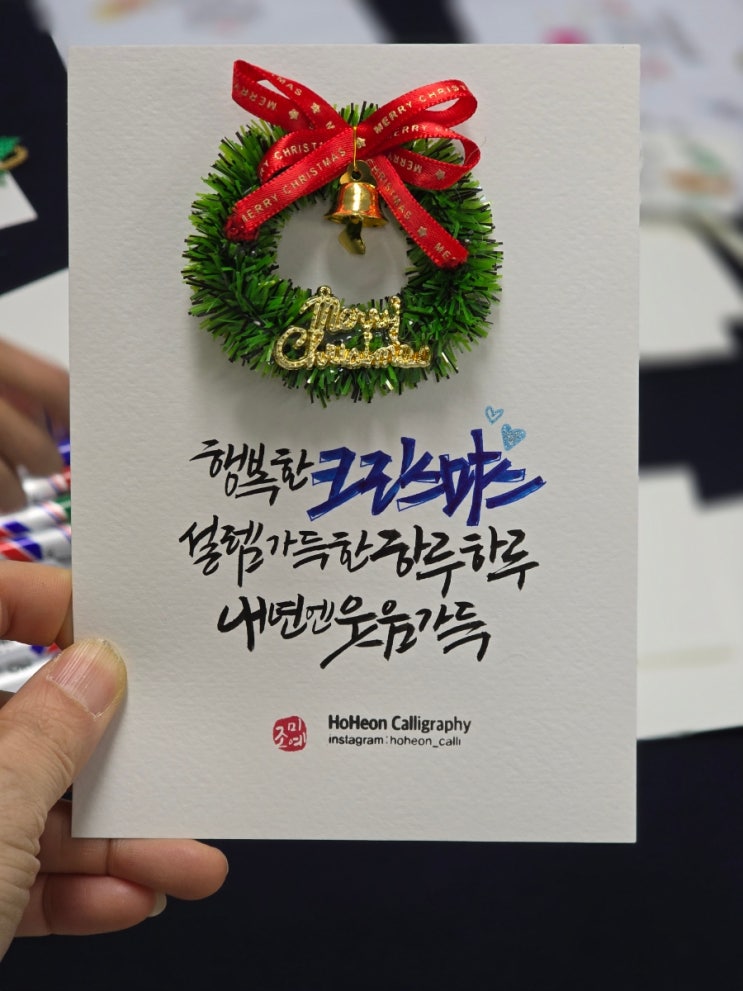 MERRY CHRISTMAS
Merry
Christmas
행복한 크리스마스
설렘 가득한 하루하루
내년엔 웃음 가득
조미예
HoHeon Calligraphy
instagram:hoheon_calli